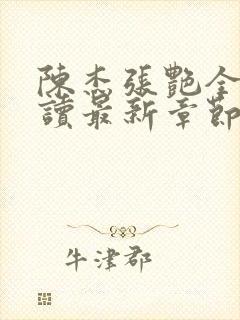 陳杰張艷全
讀最新章節
牛津郡